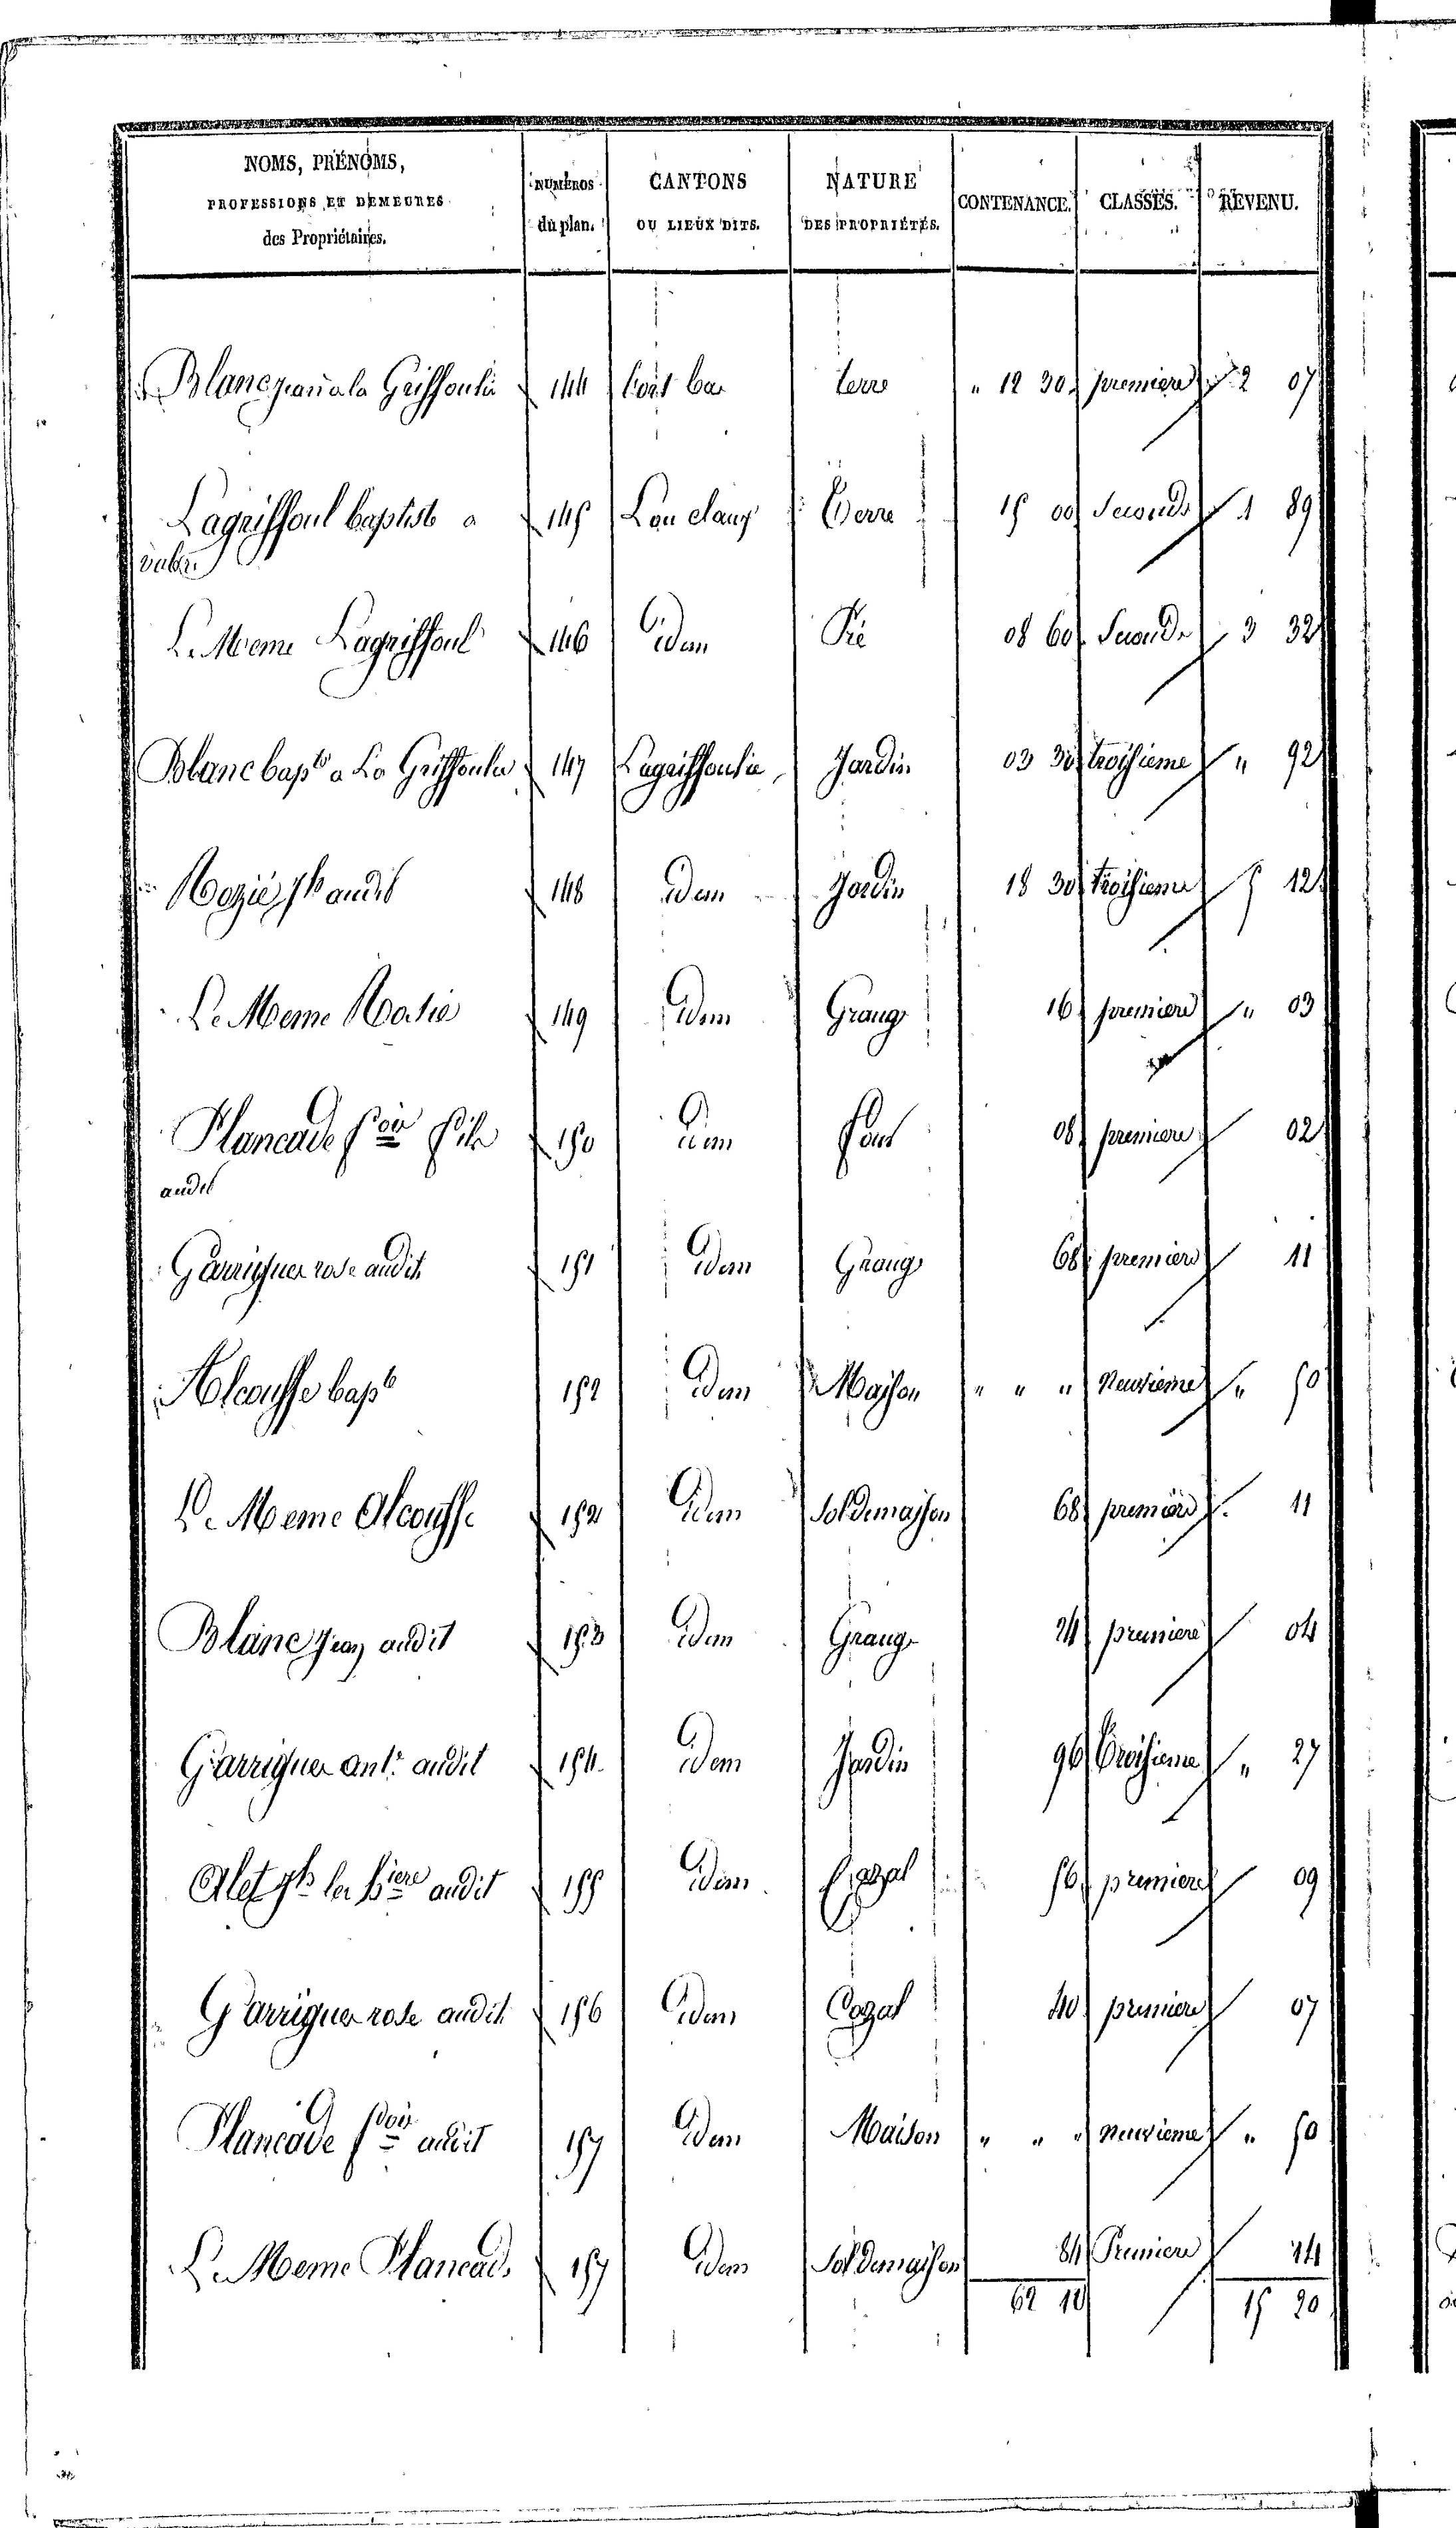 NOMS, PRÉNOMS, PROFESSIONS ET DEMEURES des Propriétaires. | NUMÉROS du plan. | CANTONS OU LIEUX DITS. | NATURE DES PROPRIÉTÉS. | CONTENANCE. | CLASSES. | REVENU.
Blanc jean a la Griffoulie 144 bas terre " 12 30 premiere 2 07
Lagriffoul baptiste a 145 Lou claux Terre 15 00 Seconde 1 89
vabre
Le Meme Lagriffoul 146 idem Pré 08 60 Seconde 3 32
Blanc bapte a La Griffoulie 147 Lagriffoulie Jardin 03 30 troisieme " 92
Mozié jh audit 148 idem Jardin 18 30 troisieme 5 12
Le Meme 149 idem Grange 16 premiere " 03
Plancade fois fils 150 idem four 08 premiere 02
audit
Garrigues rose audit 151 idem Grange 68 premiere 11
Alcouffe bapte 152 idem Maison " " " neuvieme " 50
Le Meme Alcouffe 152 idem Sol de maison 68 premiere 11
Blanc jean audit 153 idem Grange 24 premiere 04
Garrigues ante audit 154 idem Jardin 96 troisieme " 27
Alet jh audit 155 idem Cazal 56 premiere 09
Garrigues rose audit 156 idem Cazal 40 premiere 07
Plancade fois audit 157 idem Maison " " " neuvieme " 50
Le Meme Plancade 157 idem Sol de maison 84 Premiere 14
62 12 15 20